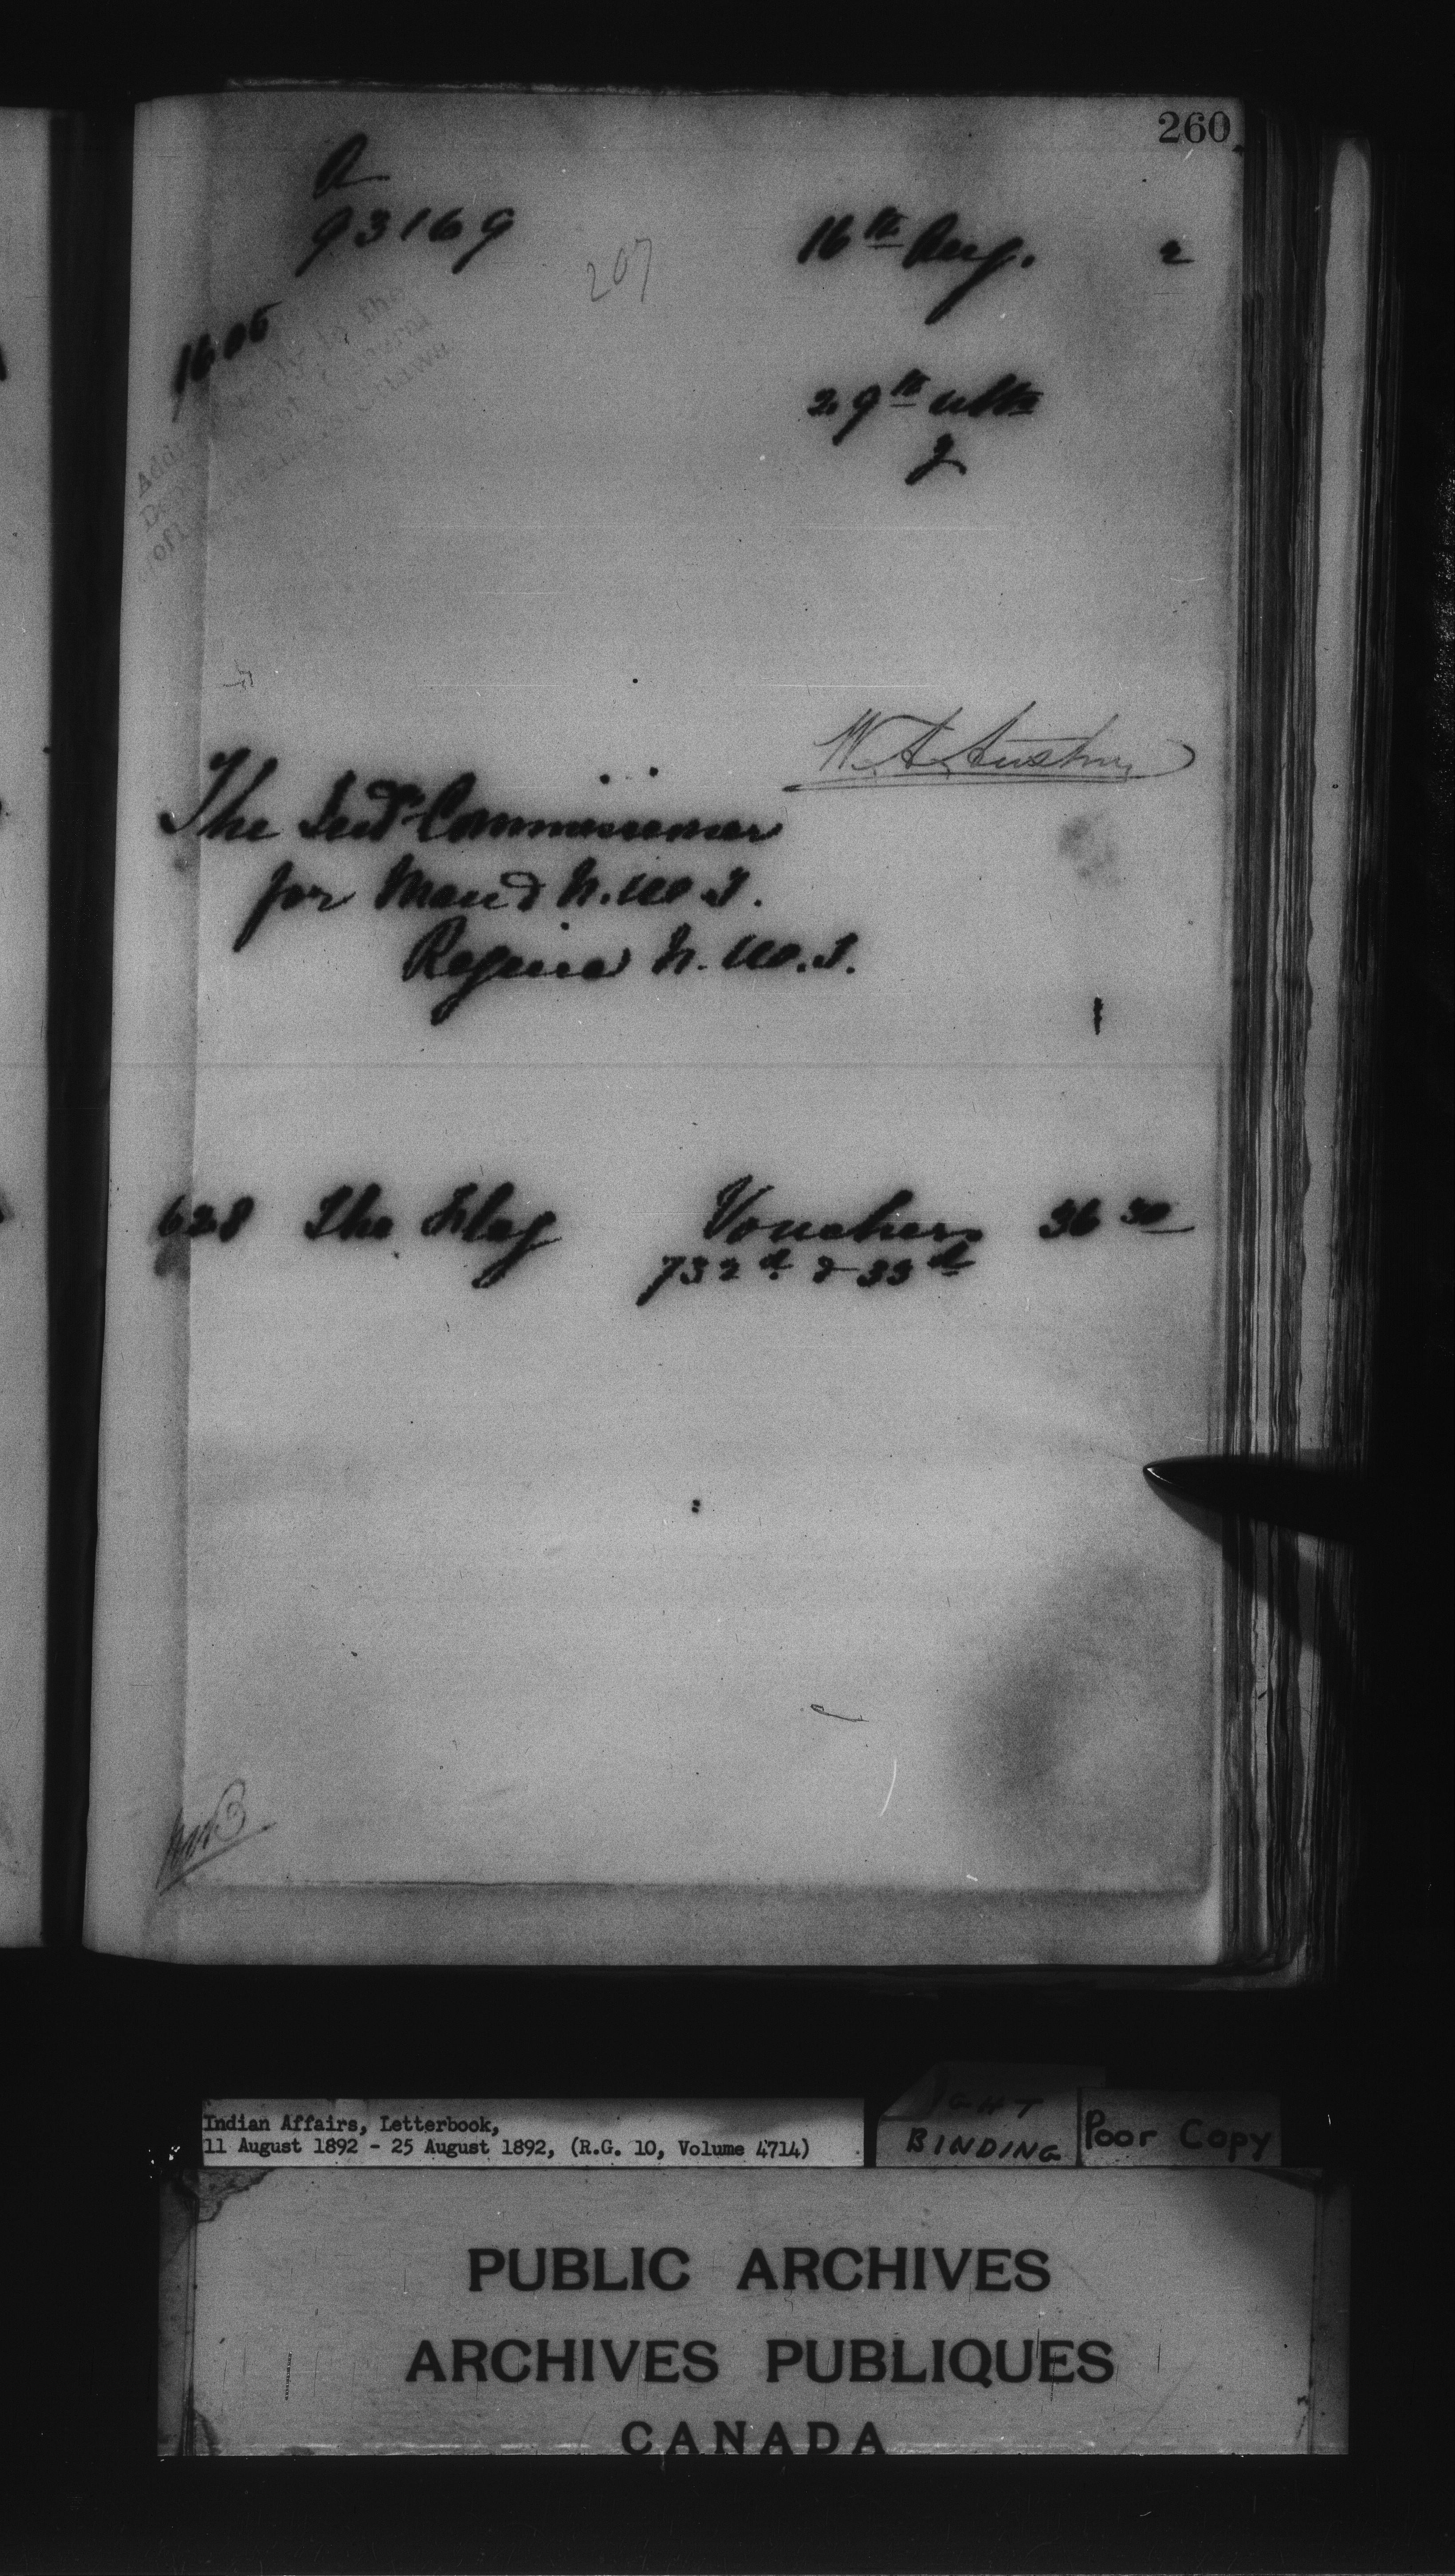 260
A
93169
207
16th Aug. 2
1605
29th ulto
W. A. Austin
The Ind. Commissioner
for Man & N.W.T.
Regina N.W.T.
628 The Vouchers 36 30
732d & 33d
Indian Affairs, Letterbook,
11 August 1892 - 25 August 1892, (R.G. 10, Volume 4714)
BINDING
Poor Copy
PUBLIC ARCHIVES
ARCHIVES PUBLIQUES
CANADA